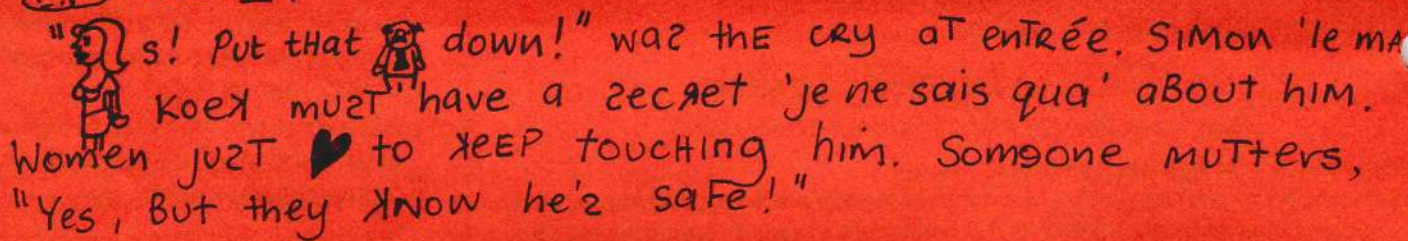 " s! Put that down!" was the cry at entrée. Simon 'le ma
Koek must have a secret 'je ne sais qua' about him.
Women just ♥ to keep touching him. Someone mutters,
"Yes, But they know he's safe!"